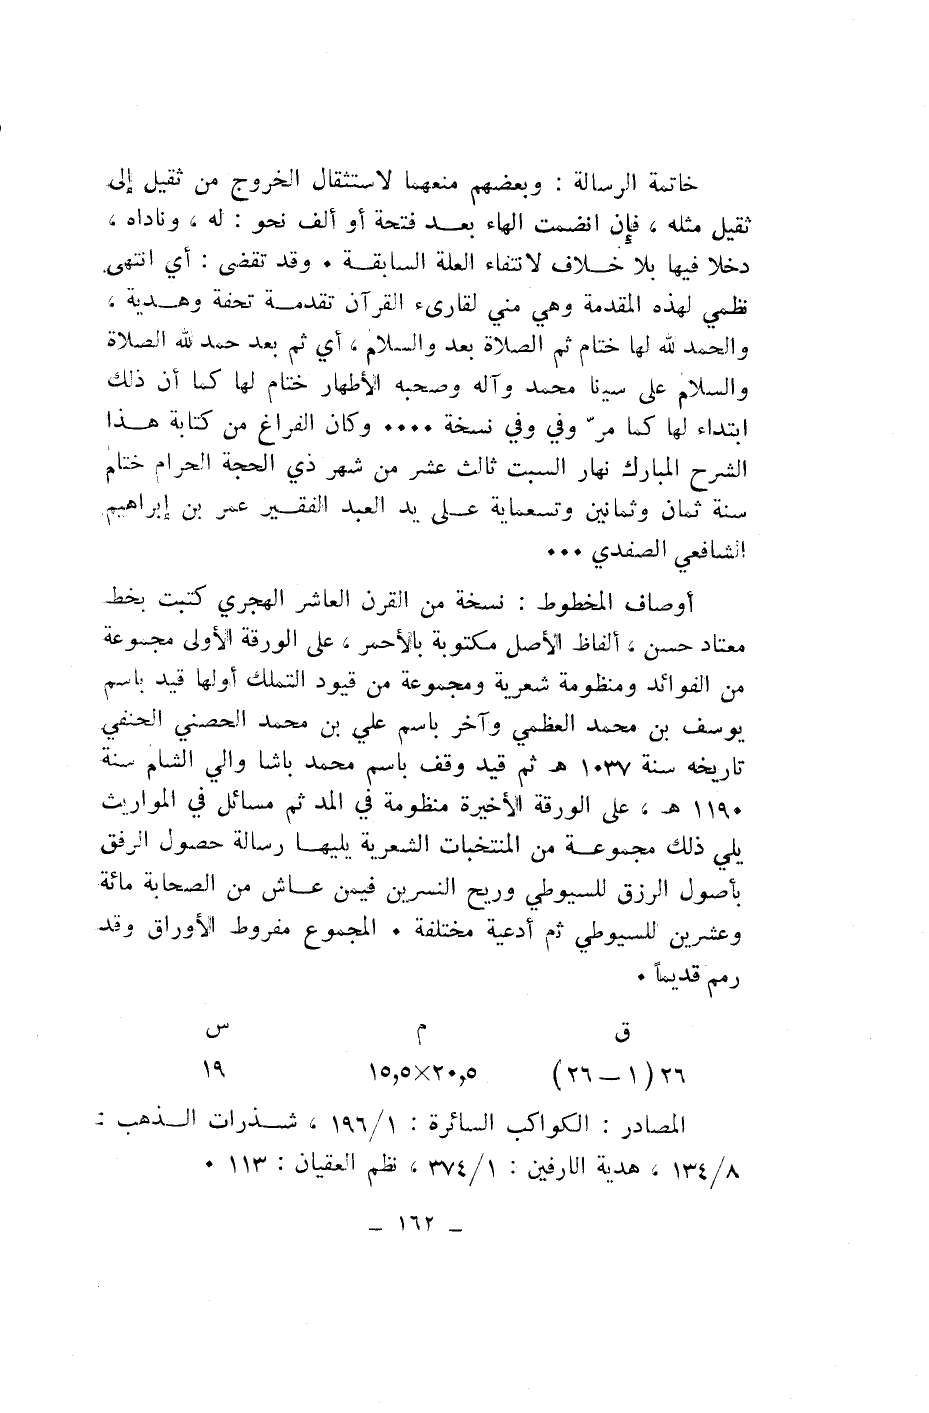 خاتمة الرسالة : وبعضهم منعهما لاستثقال الخروج من ثقيل إلى
ثقيل مثله ، فإن انضمت الهاء بعد فتحة أو ألف نحو : له ، وناداه ،
دخلا فيها بلا خلاف لانتفاء العلة السابقة • وقد تقضى : أي انتهى
نظمي لهذه المقدمة وهي مني لقارىء القرآن تقدمة تحفة وهدية ،
والحمد لله لها ختام ثم الصلاة بعد والسلام ، أي ثم بعد حمد لله الصلاة
والسلام على سينا محمد وآله وصحبه الأطهار ختام لها كما أن ذلك
ابتداء لها كما مرّ وفي وفي نسخة •••• وكان الفراغ من كتابة هذا
الشرح المبارك نهار السبت ثالث عشر من شهر ذي الحجة الحرام ختام
سنة ثمان وثمانين وتسعماية على يد العبد الفقير عمر بن إبراهيم
الشافعي الصفدي •••
أوصاف المخطوط : نسخة من القرن العاشر الهجري كتبت بخط
معتاد حسن ، ألفاظ الأصل مكتوبة بالأحمر ، على الورقة الأولى مجموعة
من الفوائد ومنظومة شعرية ومجموعة من قيود التملك أولها قيد باسم
يوسف بن محمد العظمي وآخر باسم علي بن محمد الحصني الحنفي
تاريخه سنة ١٠٣٧ هـ ثم قيد وقف باسم محمد باشا والي الشام سنة
١١٩٠ هـ ، على الورقة الأخيرة منظومة في المد ثم مسائل في المواريث
يلي ذلك مجموعة من المنتخبات الشعرية يليها رسالة حصول الرفق
بأصول الرزق للسيوطي وريح النسرين فيمن عاش من الصحابة مائة
وعشرين للسيوطي ثم أدعية مختلفة • المجموع مفروط الأوراق وقد
رمم قديماً •
ق م س
٢٦ (١ – ٢٦) ٢٠,٥×١٥,٥ ١٩
المصادر : الكواكب السائرة : ١/١٩٦ ، شذرات الذهب :
٨/١٣٤ ، هدية الارفين : ١/٣٧٤ ، نظم العقيان : ١١٣ •
– ١٦٢ –